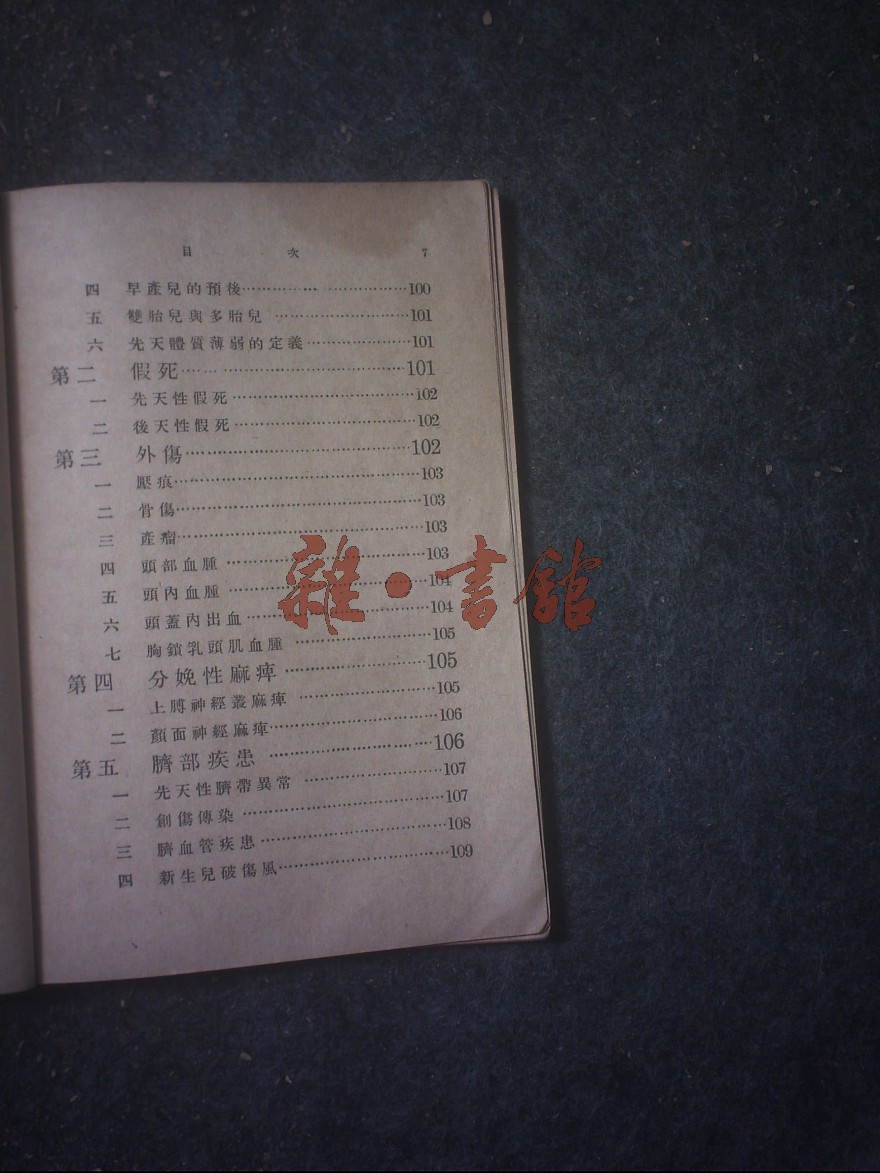 目 次 7
四 早產兒的預後………………………100
五 雙胎兒與多胎兒………………………101
六 先天體質薄弱的定義………………101
第二 假死………………………………101
一 先天性假死…………………………102
二 後天性假死…………………………102
第三 外傷………………………………102
一 壓痕…………………………………103
二 骨傷…………………………………103
三 產瘤…………………………………103
四 頭部血腫……………………………103
五 頭內血腫……………………………104
六 頭蓋內出血…………………………104
七 胸鎖乳頭肌血腫……………………105
第四 分娩性麻痺………………………105
一 上膊神經叢麻痺……………………105
二 顏面神經麻痺………………………106
第五 臍部疾患…………………………106
一 先天性臍帶異常……………………107
二 創傷傳染……………………………107
三 臍血管疾患…………………………108
四 新生兒破傷風………………………109
雜·書館